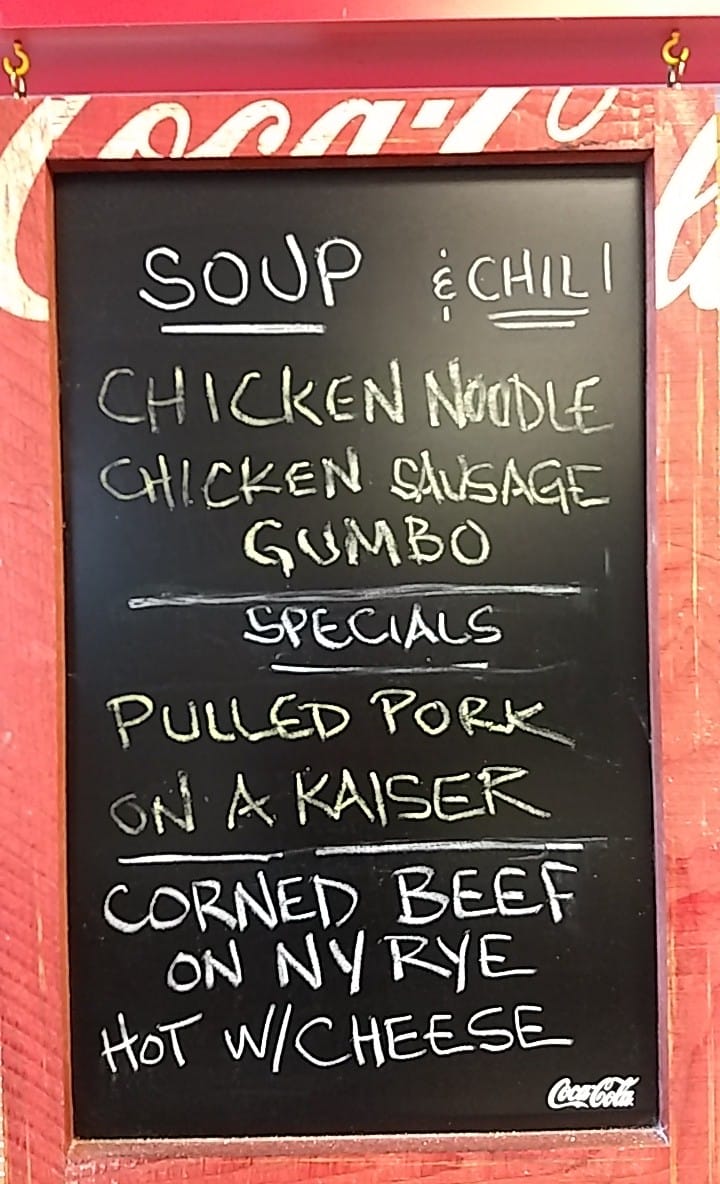 Coca-Cola
SOUP & CHILI
CHICKEN NOODLE
CHICKEN SAUSAGE
GUMBO
SPECIALS
PULLED PORK
ON A KAISER
CORNED BEEF
ON NY RYE
HOT W/CHEESE
Coca-Cola